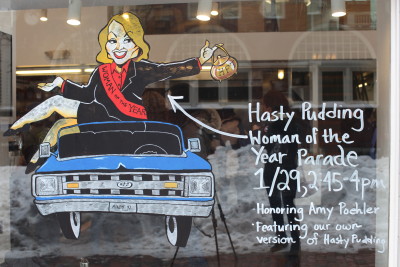 WOMAN OF THE YEAR
Hasty Pudding
Woman of the
Year Parade
1/29, 2:45-4pm
Honoring Amy Poehler
Featuring our own
version of Hasty Pudding